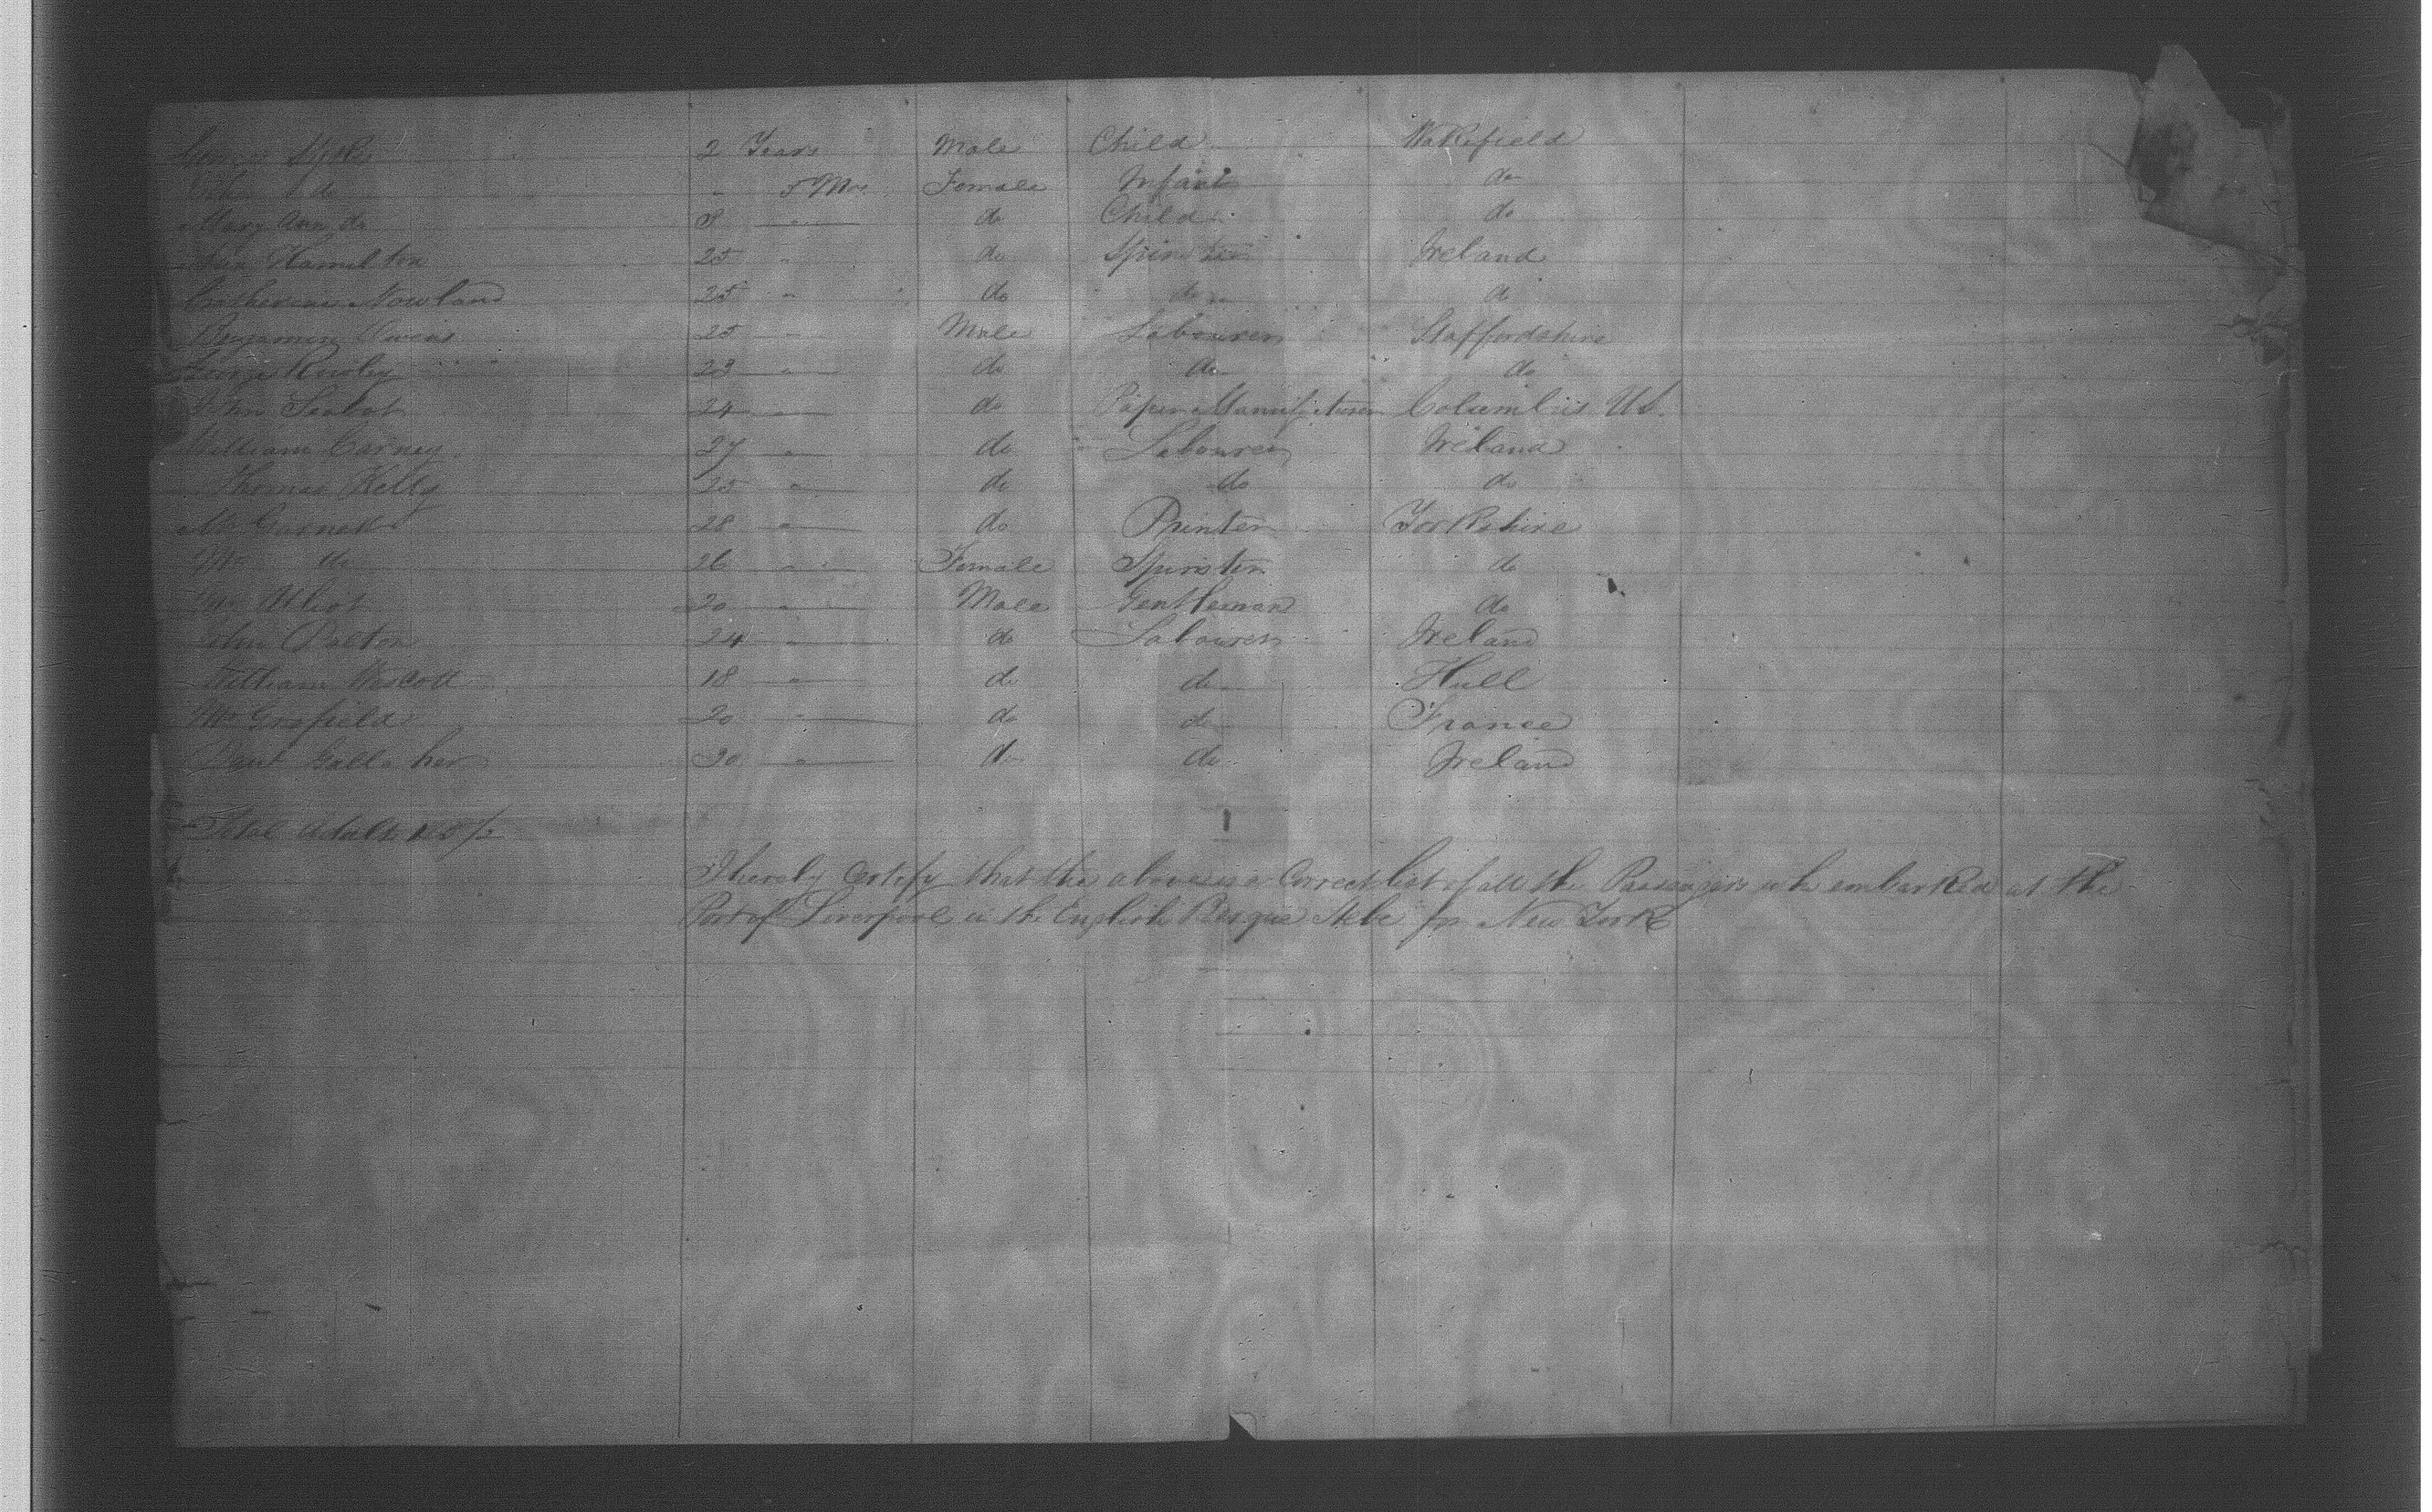 2 Years Male Child Wakefield
do " 5 Mos. Female Infant do
Mary Ann do 8 " do Child do
Ann Hamilton 25 " do Spinster Ireland
Catherine Nowland 25 " do do do
Benjamin Owens 25 " Male Labourer Staffordshire
George Rowley 23 " do do do
John 24 " do Paper Manufacturer Columbus US.
William Carney 27 " do Labourer Ireland
Thomas Kelly 25 " do do do
Mr Garnett 28 " do Printer Yorkshire
do 26 " Female Spinster do
Mr 20 " Male Gentleman do
John 24 " do Labourer Ireland
William Wescott 18 " do do Hull
Mr 20 " do do France
Gallaher 20 " do do Ireland
Total Adults
I hereby Certify that the above is a Correct list of all the Passengers who embarked at the
Port of Liverpool in the English Barque Hebe for New York